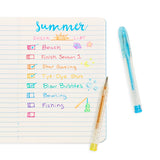 Summer
BUCKET LIST
Beach
Finish Season 1
Star Gazing
Tye-Dye Shirt
Blow Bubbles
Bowling
Fishing